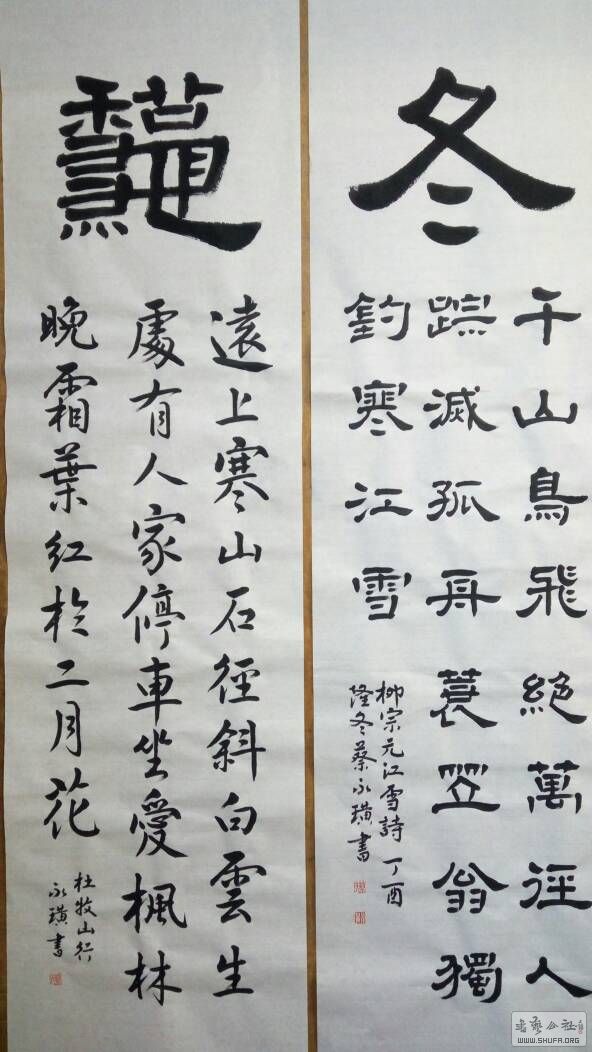 冬
千山鳥飛絶萬徑人
踪滅孤舟蓑笠翁獨
釣寒江雪
柳宗元江雪詩 丁酉
隆冬蔡永璜書
遠上寒山石徑斜白雲生
處有人家停車坐愛楓林
晚霜葉紅於二月花
杜牧山行
永璜書
书艺公社
WWW.SHUFA.ORG